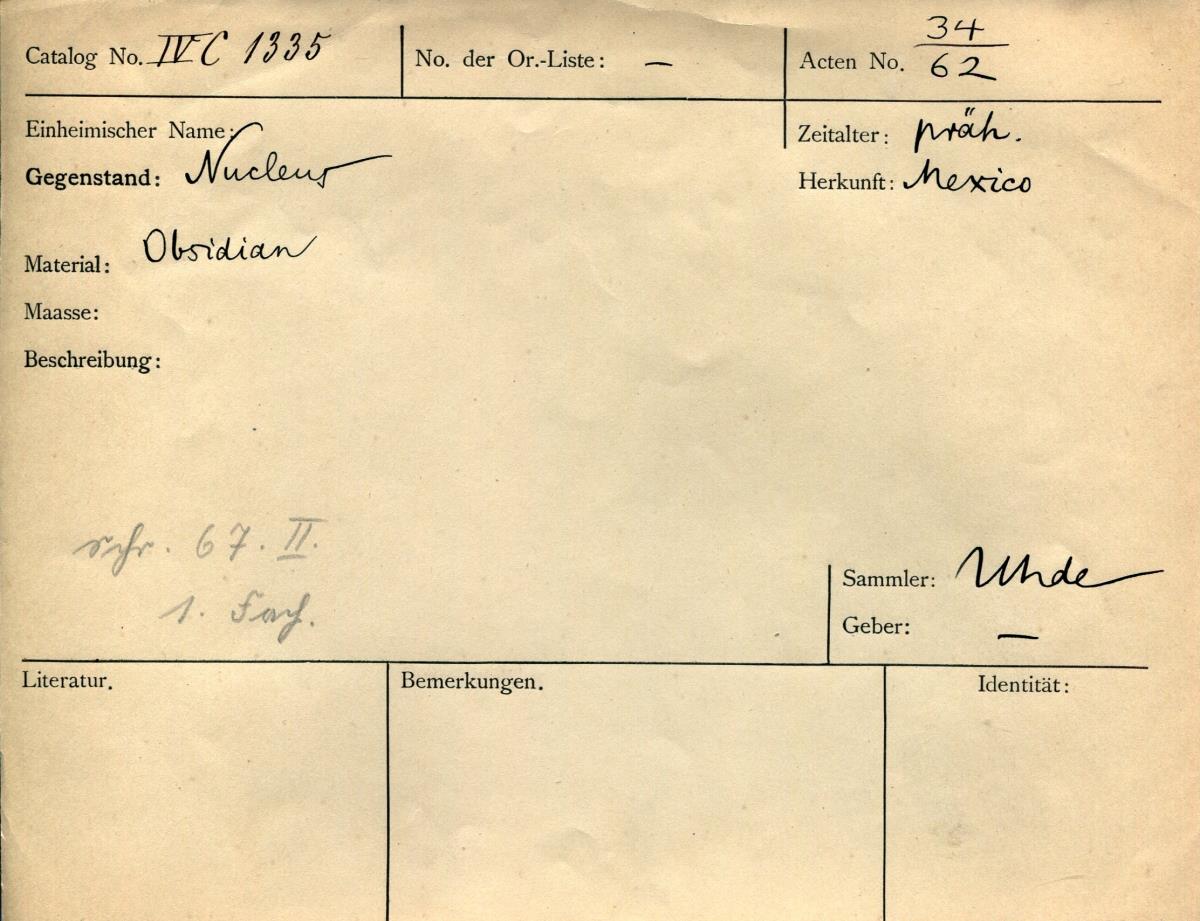 Catalog No. IV C 1335 No. der Or.-Liste: — Acten No. 34/62
Einheimischer Name: Zeitalter: präh.
Gegenstand: Nucleus Herkunft: Mexico
Material: Obsidian
Maasse:
Beschreibung:
schr. 67. II.
1. Fach.
Sammler: Uhde
Geber: —
Literatur. Bemerkungen. Identität: